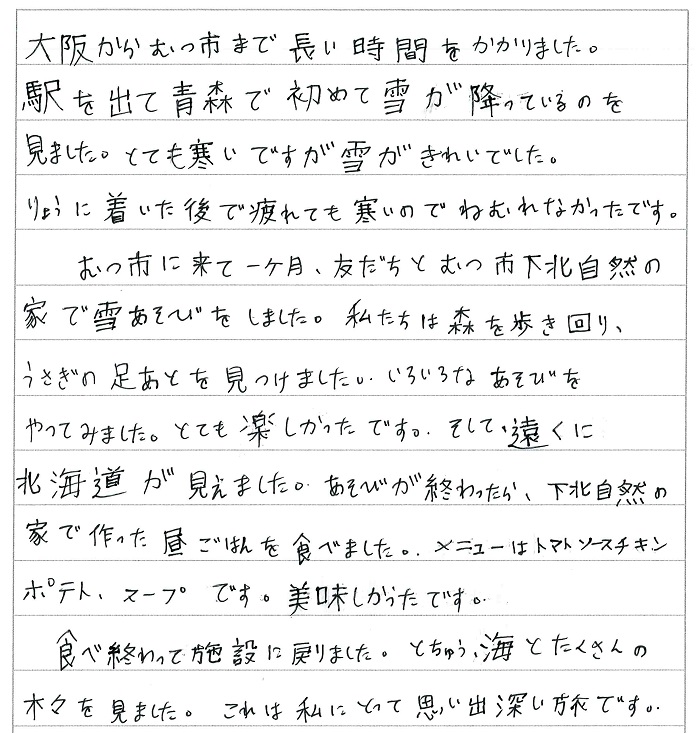 大阪からむつ市まで長い時間をかかりました。
駅を出て青森で初めて雪が降っているのを
見ました。とても寒いですが雪がきれいでした。
りょうに着いた後で疲れても寒いのでねむれなかったです。
むつ市に来て一ケ月、友だちとむつ市下北自然の
家で雪あそびをしました。私たちは森を歩き回り、
うさぎの足あとを見つけました。いろいろなあそびを
やってみました。とても楽しかったです。そして、遠くに
北海道が見えました。あそびが終わったら、下北自然の
家で作った昼ごはんを食べました。メニューはトマトソースチキン
ポテト、スープです。美味しかったです。
食べ終わって施設に戻りました。とちゅう、海とたくさんの
木々を見ました。これは私にとって思い出深い旅です。